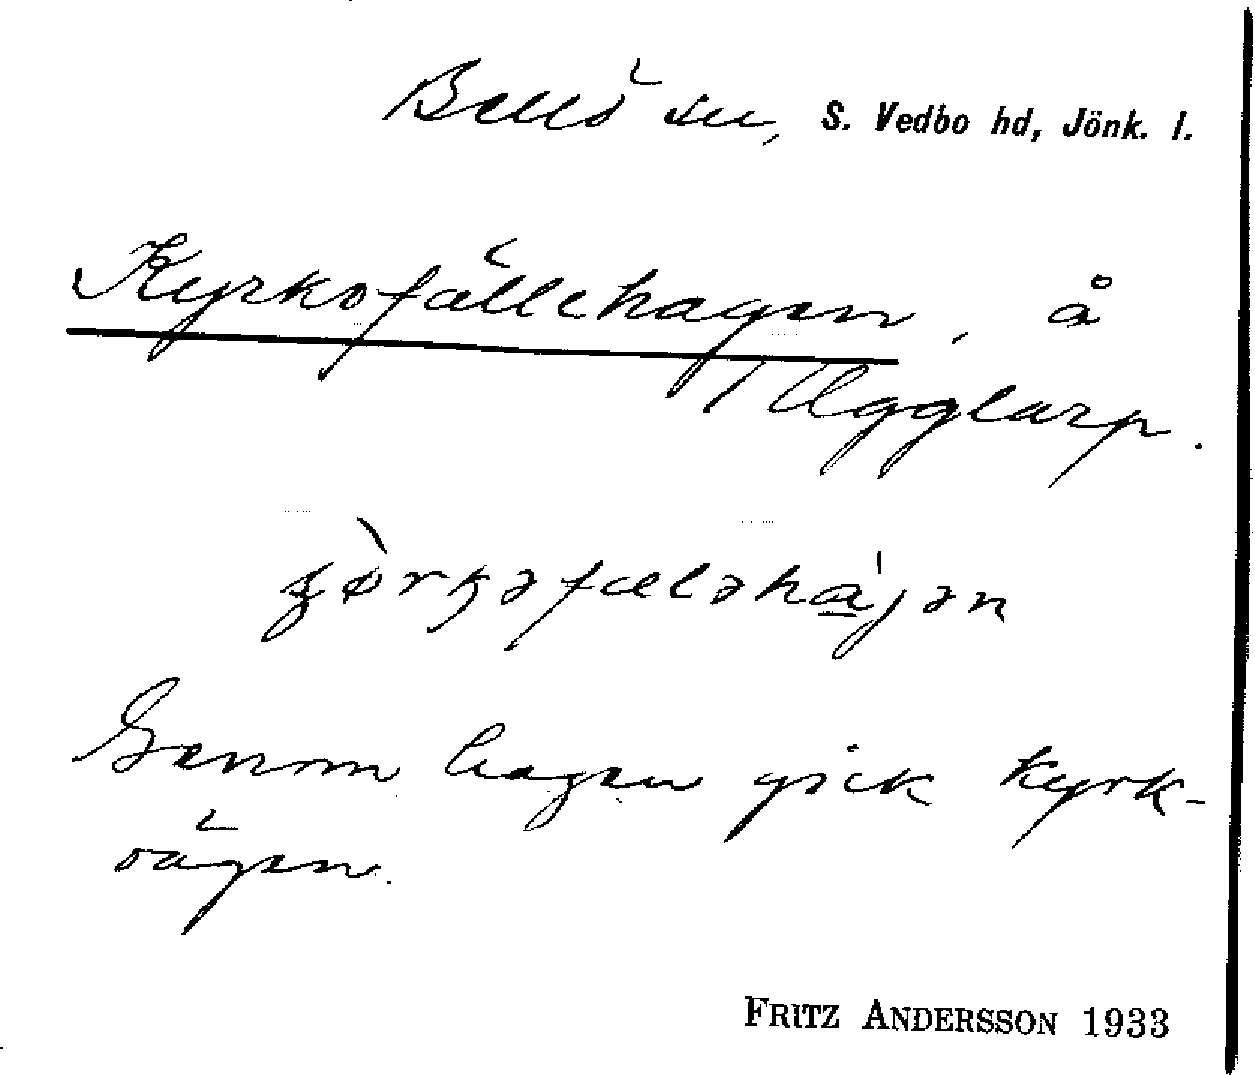 Bellö sn, S. Vedbo hd, Jönk. l.
Kyrkofällehagen, å
Ugglarp.
Genom hagen gick kyrk-
vägen.
FRITZ ANDERSSON 1933